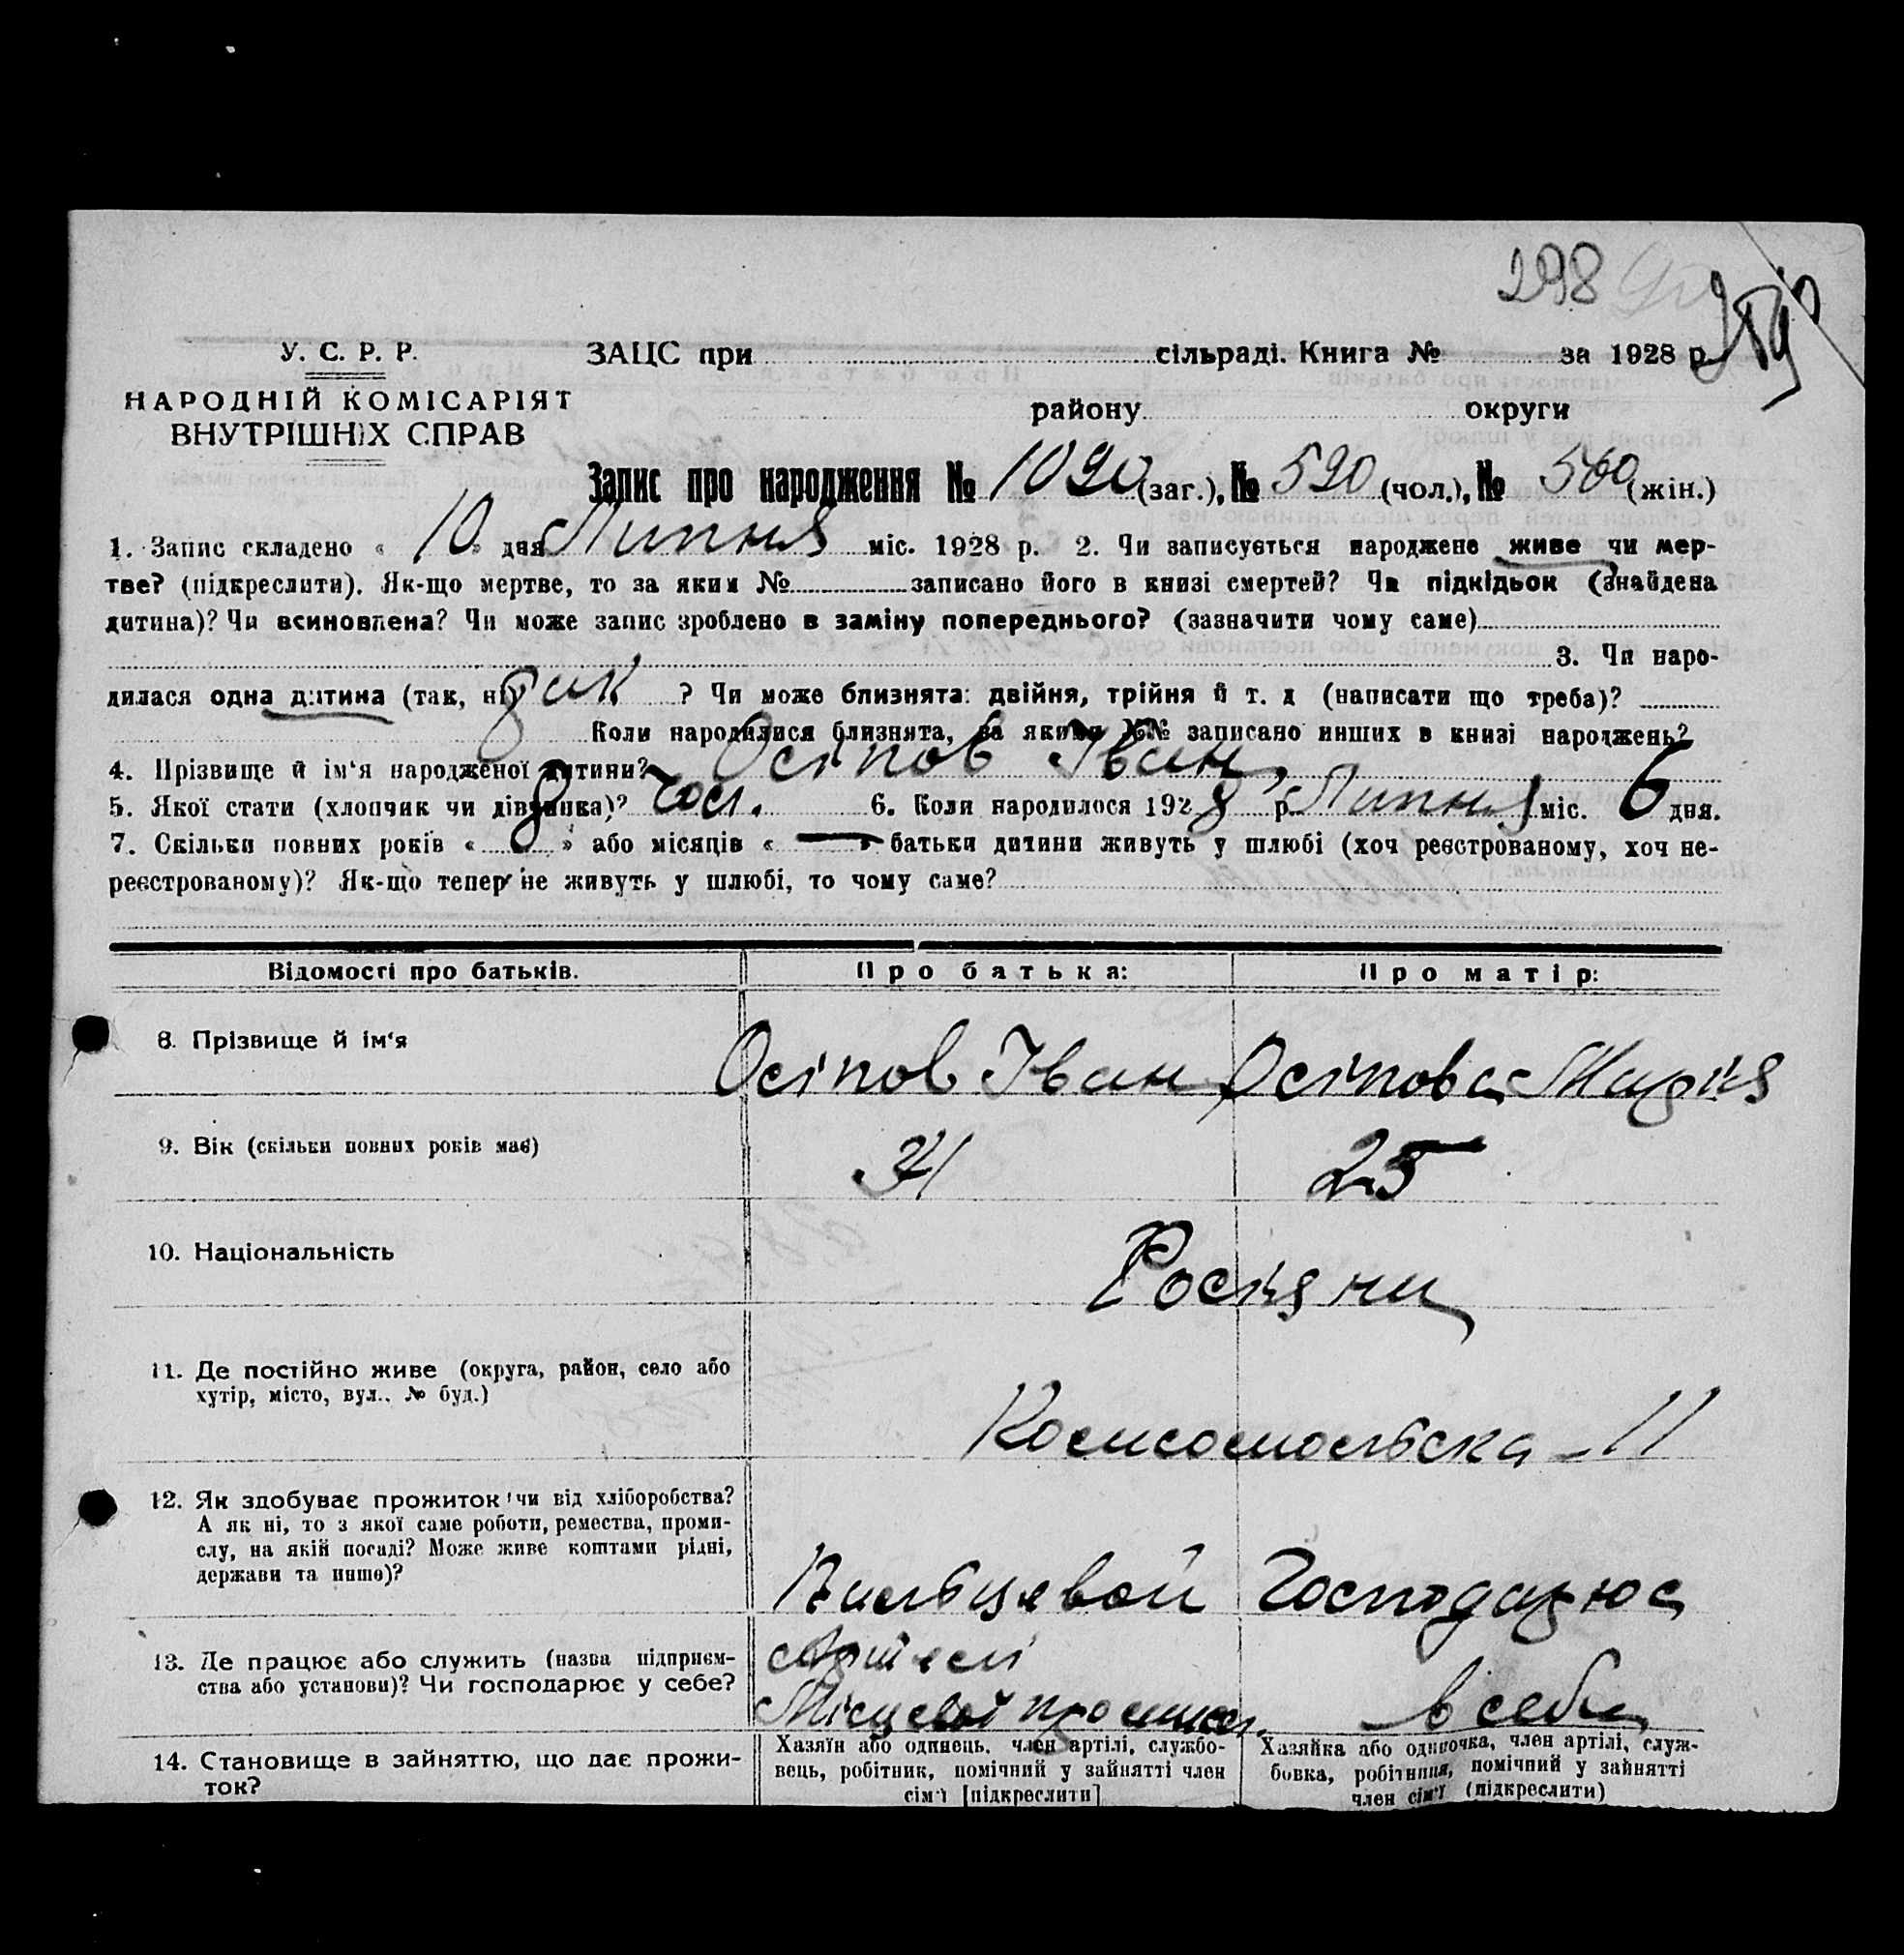 298
У. С. Р. Р.
ЗАЦС при сільраді. Книга № за 1928 р.
НАРОДНІЙ КОМІСАРІЯТ
ВНУТРІШНІХ СПРАВ
району округи
Запис про народження № 1090 (заг.), № 590 (чол.), № 500 (жін.)
1. Запис складено « 10 » дня Липня міс. 1928 р. 2. Чи записується народжене живе чи мер-
тве? (підкреслити). Як-що мертве, то за яким № записано його в книзі смертей? Чи підкідьок (знайдена
дитина)? Чи всиновлена? Чи може запис зроблено в заміну попереднього? (зазначити чому саме)
3. Чи наро-
дилася одна дитина (так, ні) так ? Чи може близнята: двійня, трійня й т. д (написати що треба)?
Коли народилися близнята, за якими №№ записано инших в книзі народжень?
4. Прізвище й ім‘я народженої дитини? Осіпов Іван
5. Якої стати (хлопчик чи дівчинка)? чол. 6. Коли народилося 1928 р. Липня міс. 6 дня.
7. Скільки повних років « 8 » або місяців « — » батьки дитини живуть у шлюбі (хоч реєстрованому, хоч не-
реєстрованому)? Як-що тепер не живуть у шлюбі, то чому саме?
Відомості про батьків. Про батька: Про матір:
8. Прізвище й ім‘я Осіпов Іван Осіпова Марія
9. Вік (скільки повних років має) 31 25
10. Національність Росіяни
11. Де постійно живе (округа, район, село або
хутір, місто, вул., № буд.)
Комсомольська - 11
12. Як здобуває прожиток чи від хліборобства?
А як ні, то з якої саме роботи, ремества, проми-
слу, на якій посаді? Може живе коштами рідні,
держави та инше)?
Господарює
13. Де працює або служить (назва підприєм-
ства або установи)? Чи господарює у себе?
Артелі
Місцевої промисл. в себе
14. Становище в зайняттю, що дає прожи-
ток?
Хазяїн або одинець, член артілі, службо-
вець, робітник, помічний у зайнятті член
сім‘ї [підкреслити]
Хазяйка або одиночка, член артілі, служ-
бовка, робітниця, помічний у зайнятті
член сім‘ї (підкреслити)